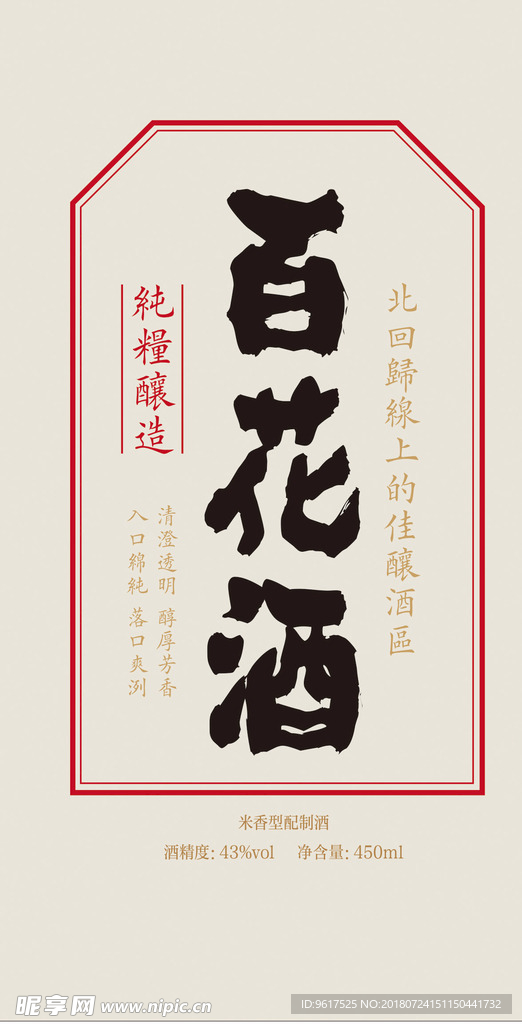 北回歸線上的佳釀酒區
百花酒
純糧釀造
清澄透明 醇厚芳香
入口綿純 落口爽洌
米香型配制酒
酒精度: 43%vol 净含量: 450ml
昵享网 www.nipic.cn
ID:9617525 NO:20180724151150441732